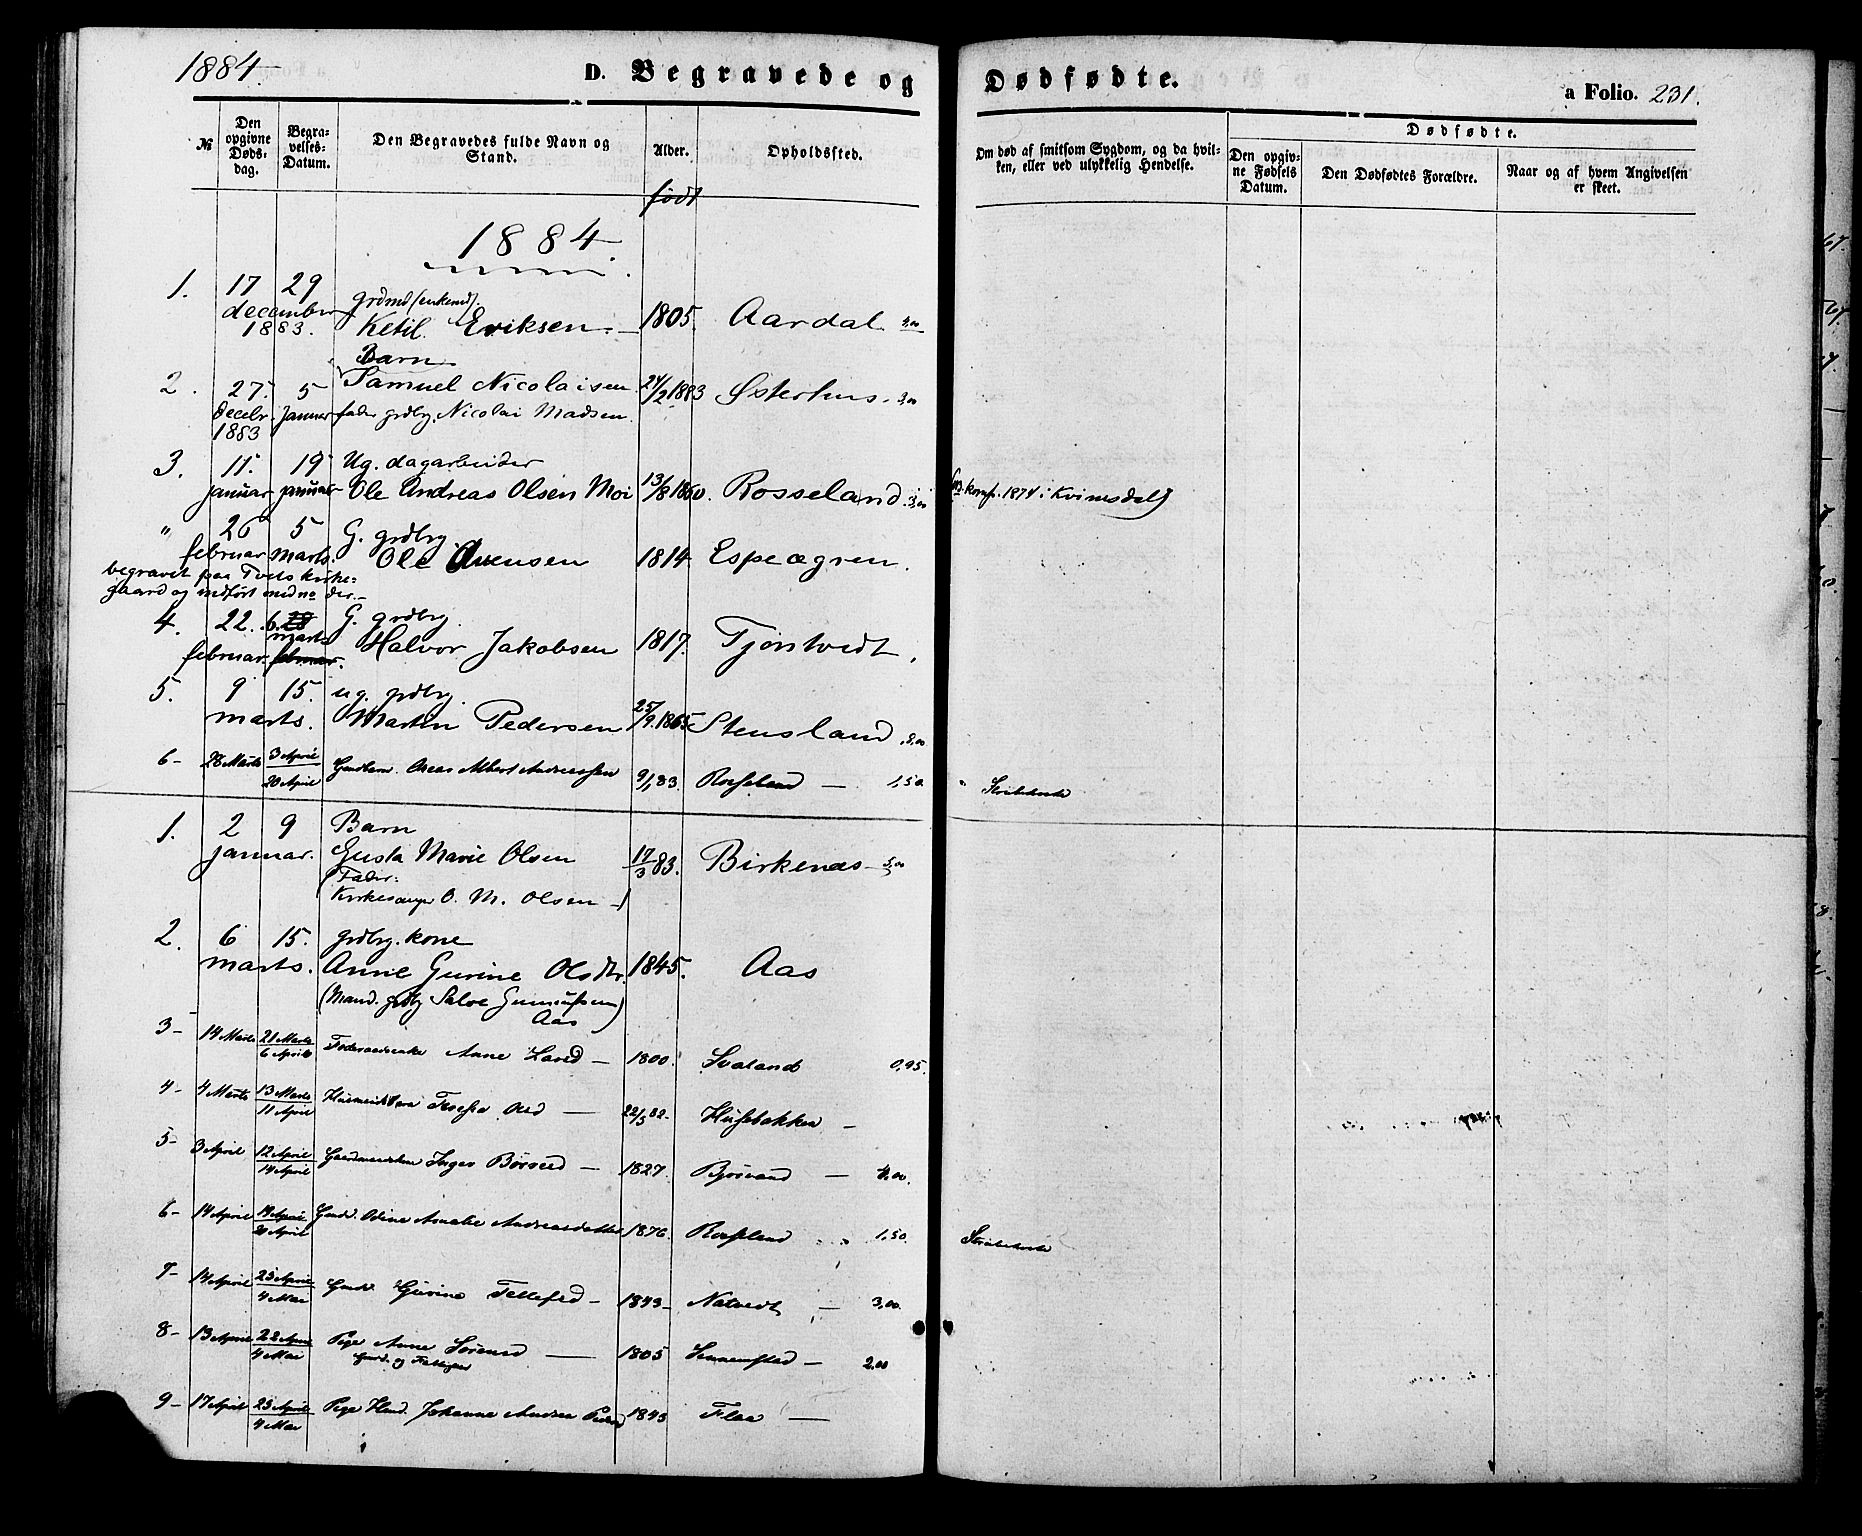 1884.
D. Begravede og Dødfødte.
a Folio. 231.
№
Den opgivne Døds-dag.
Begra-velses-Datum.
Den Begravedes fulde Navn og Stand.
Alder.
Opholdssted.
Om død af smitsom Sygdom, og da hvil-ken, eller ved ulykkelig Hendelse.
Dødfødte.
Den opgiv-ne Fødsels Datum.
Den Dødfødtes Forældre.
Naar og af hvem Angivelsen er skeet.
født
1884.
1. 17 29 grdmd (enkemd).
december 1883. Ketil Eriksen. 1805. Aardal
Barn
2. 27. 5 Samuel Nicolaisen 24/2 1883 Østerhus. 3,00
decebr. Januar fader grdbr. Nicolai Madsen.
1883
3. 11. 19 Ug. dagarbeider
januar januar Ole Andreas Olsen Moi 13/8 1860. Rosseland. 3,00 konf. 1874 i Kvinesdal)
" 26 5 G. grdbr.
februar marts. Ole Ovensen 1814 Espeægren.
begravet paa Tvets kirke=
gaard og indført der.
4. 22. 6. 28 G. grdbr.
februar marts februar. Halvor Jakobsen 1817. Tjøntvedt.
5. 9 15. ug. grdbr.
marts. Martin Pedersen 25/9. 1865 Stensland. 3,00
6- 28 Marts 3 April / 20 April Albert Andreassen 9/1 83. Rosseland — 1,50.
1. 2 9 Barn
januar. Gusta Marie Olsen 17/3 83. Birkenæs
(Fader:
Kirkesanger O. M. Olsen)
2. 6 15. grdbr. kone
marts. Anne Gurine Olsdtr. 1845. Aas
(Mand. grdbr Salve Gunnufsen
Aas)
3- 14 Marts 21 Marts / 6 April Føderaadsenke Anne — 1800. Svaland 0,95.
4- 4 Marts 13 Marts / 11 April — Husebakken —
5- 3 April 12 April / 14 April Inger — 1827. Bjorvand — 4,00.
6- 14 April 19 April / 20 April Odine Amalie Andreasdatter 1876. Rosseland 1,50.
7- 14 April 25 April / 4 Mai Gurine Tellefsd — 1843- Natvedt — 3,00.
8- 13 April 22 April / 4 Mai Pige Anne Sørensd — 1805 — 2,00
og Fattigen
9- 17 April 23 April / 4 Mai Pige Johanne Andrea 1843 Flaa —